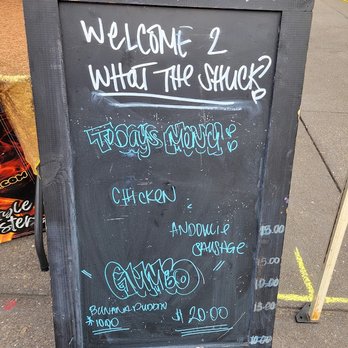 WELCOME 2
WHAT THE SHUCK?
TODAYS MENU:
CHICKEN
ANDOUILLE
SAUSAGE
GUMBO
BANANA PUDDIN
$10.00
$20.00
15.00
10.00
15.00
10.00
.COM